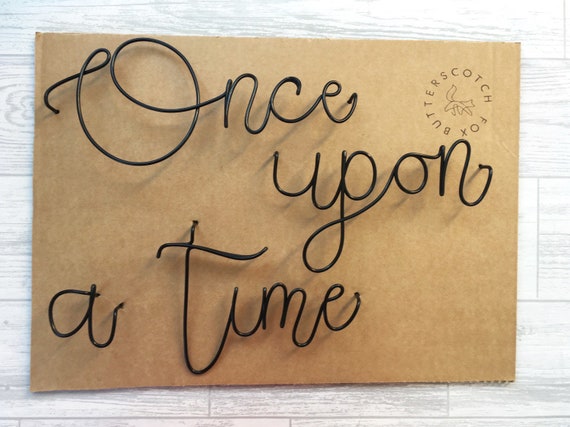 Once
upon
a time
BUTTERSCOTCH FOX